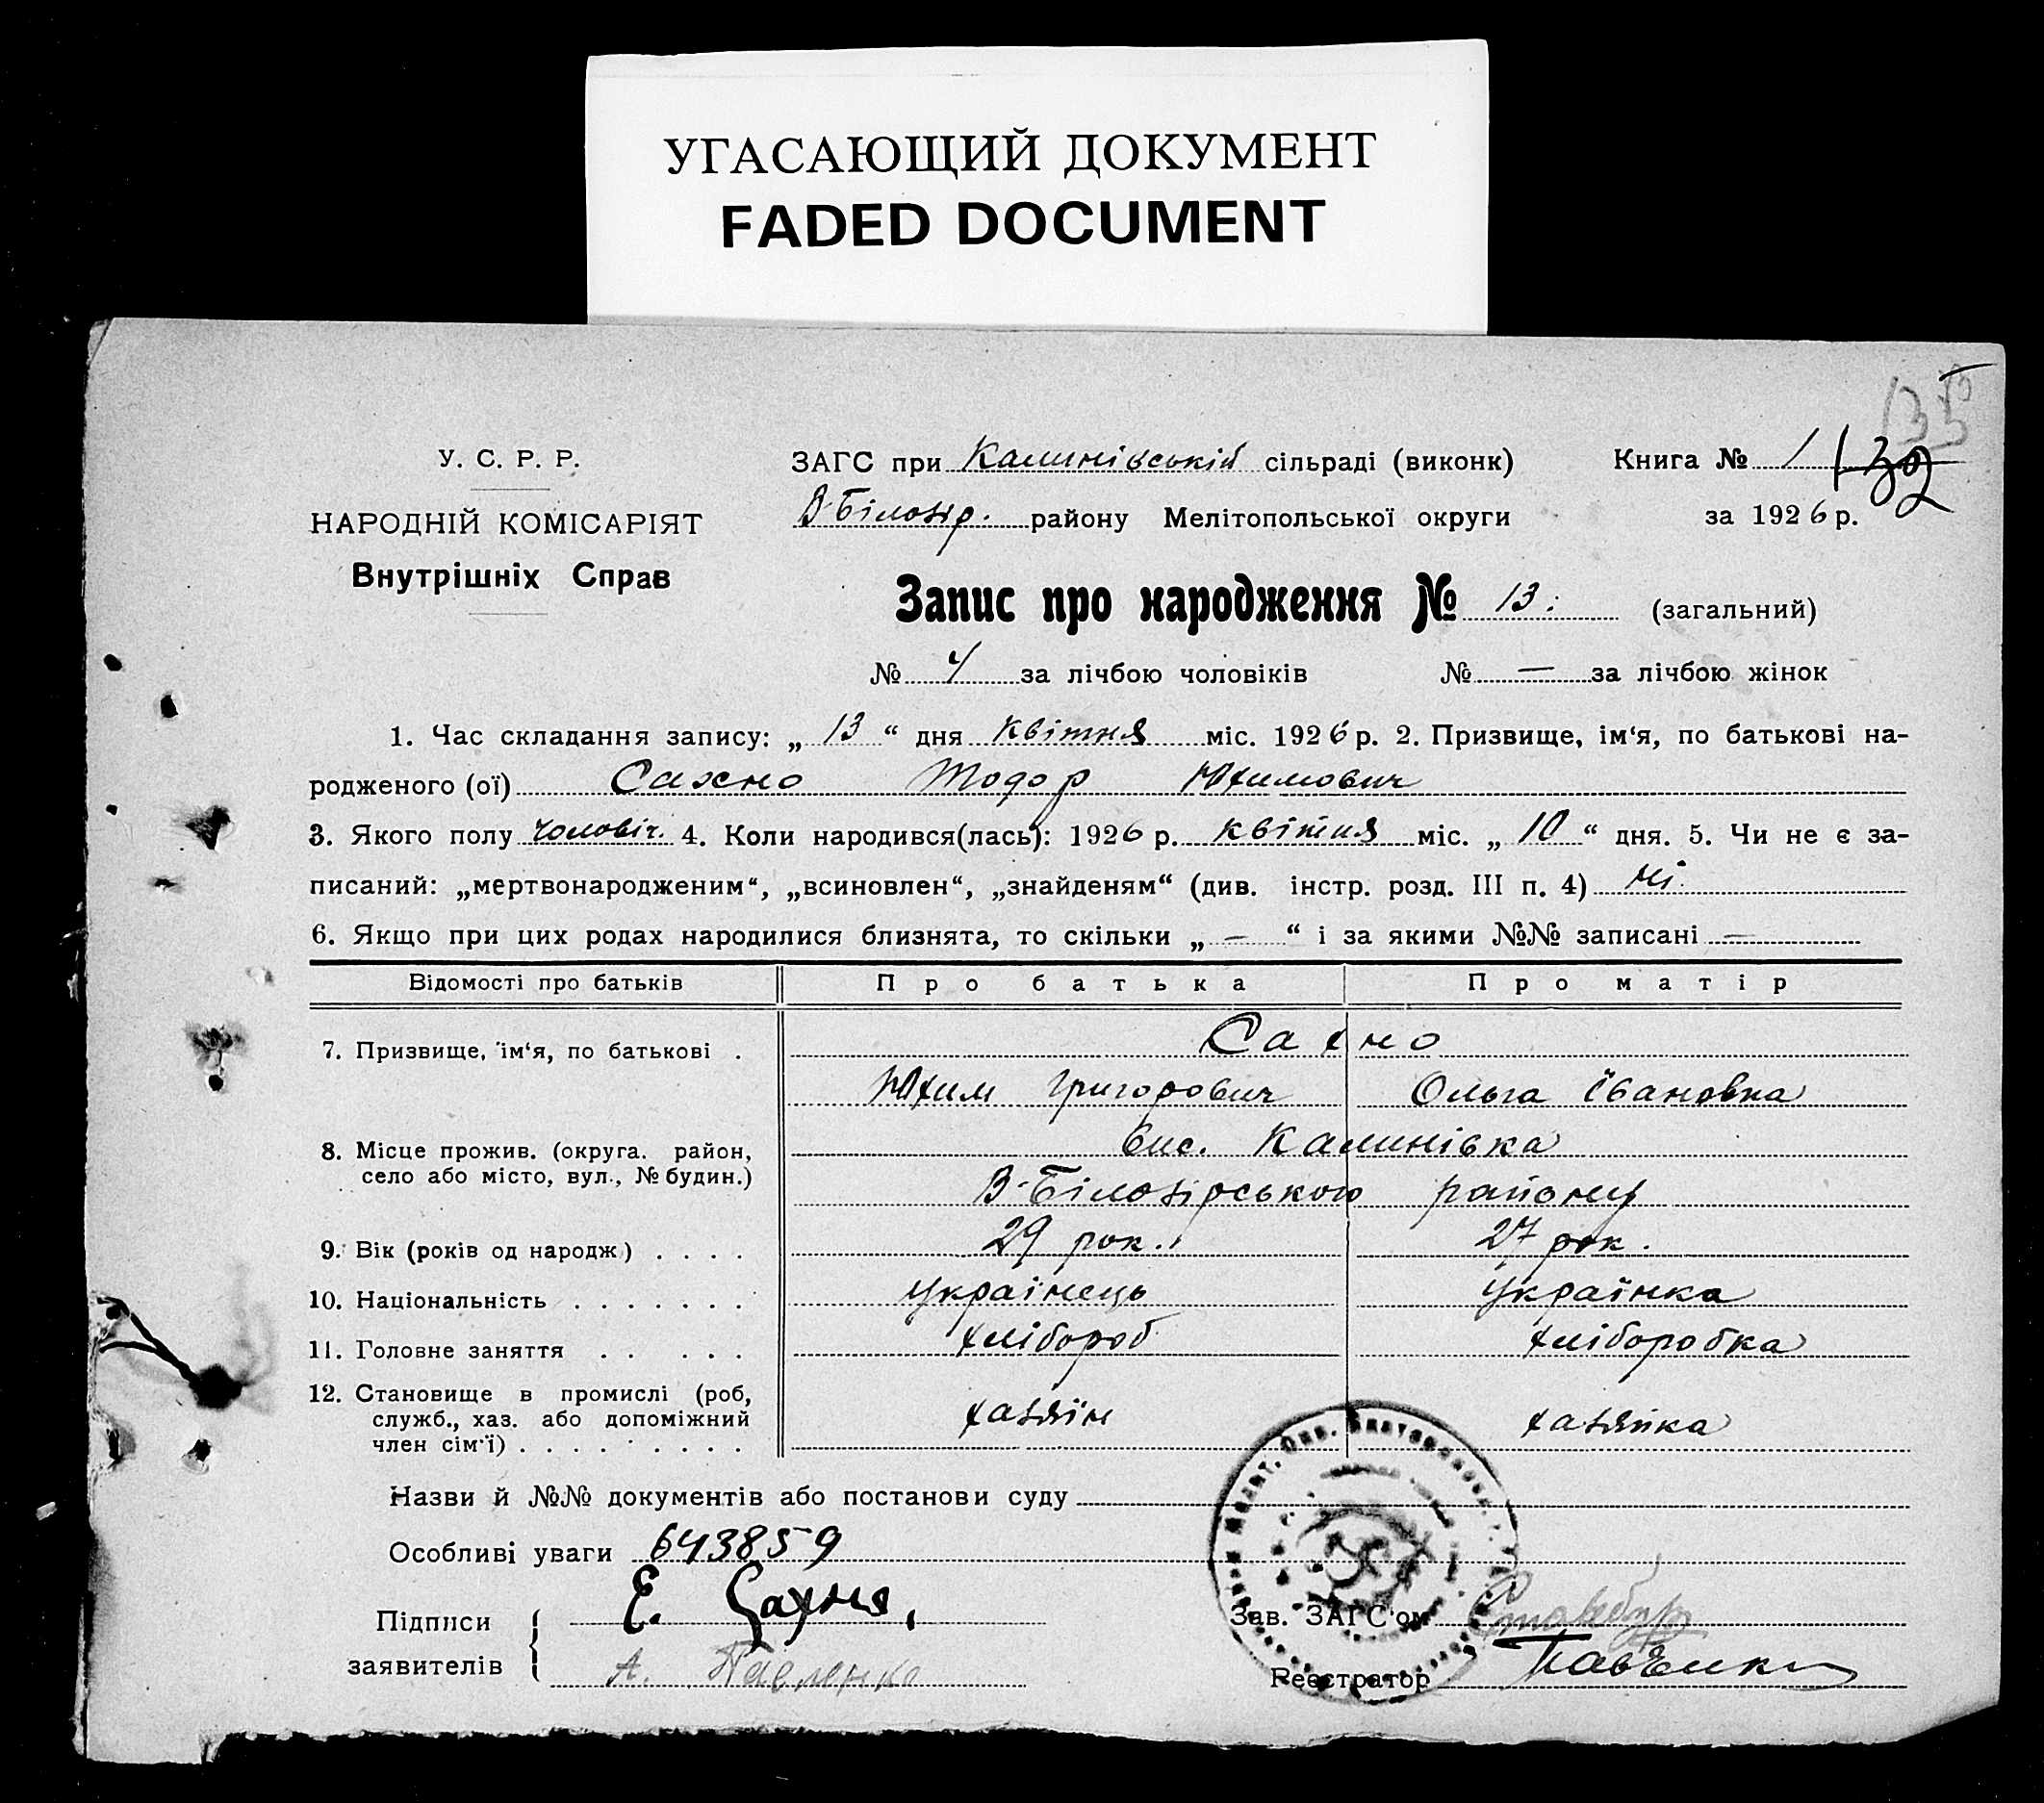 УГАСАЮЩИЙ ДОКУМЕНТ
FADED DOCUMENT
У. С. Р. Р.
НАРОДНІЙ КОМІСАРІЯТ
Внутрішніх Справ
ЗАГС при Калинівській сільраді (виконк)
В-Білозір. району Мелітопольської округи
Книга № 1
132
за 1926 р.
Запис про народження № 13 (загальний)
№ 4 за лічбою чоловіків № — за лічбою жінок
1. Час складання запису: „ 13 “ дня Квітня міс. 1926 р. 2. Призвище, ім‘я, по батькові на-
родженого (ої) Сахно Тодор Юхимович
3. Якого полу чоловіч. 4. Коли народився(лась): 1926 р. квітня міс. „ 10 “ дня. 5. Чи не є за-
писаний: „мертвонародженим“, „всиновлен“, „знайденям“ (див. інстр. розд. III п. 4) ні.
6. Якщо при цих родах народилися близнята, то скільки „ — “ і за якими №№ записані —
Відомості про батьків Про батька Про матір
7. Призвище, ім‘я, по батькові . Сахно
Юхим Григорович Ольга Івановна
8. Місце прожив. (округа. район, село або місто, вул., № будин.)
вис. Калинівка
В-Білозірського району
9. Вік (років од народж) . . . . 29 рок. 27 рок.
10. Національність . . . . . . . українець українка
11. Головне заняття . . . . . хлібороб хлібороб­ка
12. Становище в промислі (роб,
служб., хаз. або допоміжний
член сім‘ї) . . . . . . . . . хазяїн хазяйка
Назви й №№ документів або постанови суду
Особливі уваги 643859
Підписи
заявителів
Е. Сахня,
А. Павленко
Зав. ЗАГС‘ом
Реєстратор